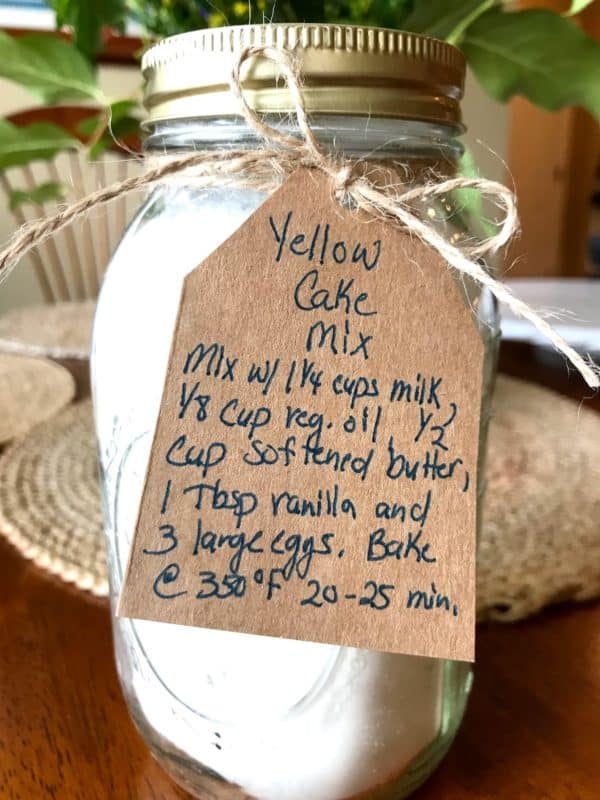 Yellow
Cake
Mix
Mix w/ 1 1/4 cups milk,
1/8 cup reg. oil, 1/2
cup softened butter,
1 Tbsp vanilla and
3 large eggs. Bake
@ 350°F 20-25 min.